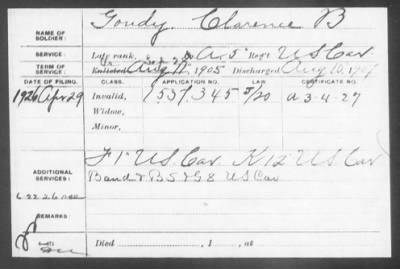 NAME OF SOLDIER: Goudy, Clarence B
SERVICE: Late rank, A, 5" Reg't U S Cav
TERM OF SERVICE: Enlisted Aug 1905 Discharged Aug 10, 1907
DATE OF FILING. CLASS. APPLICATION NO. LAW. CERTIFICATE NO.
1926 Apr 29 Invalid, 1537,345 5/20 a 3-4-27
Widow,
Minor,
ADDITIONAL SERVICES: F 1" U.S. Cav K 12" U S Cav
Band & B 5 & G 8 U S Cav
REMARKS:
Died , 1 , at